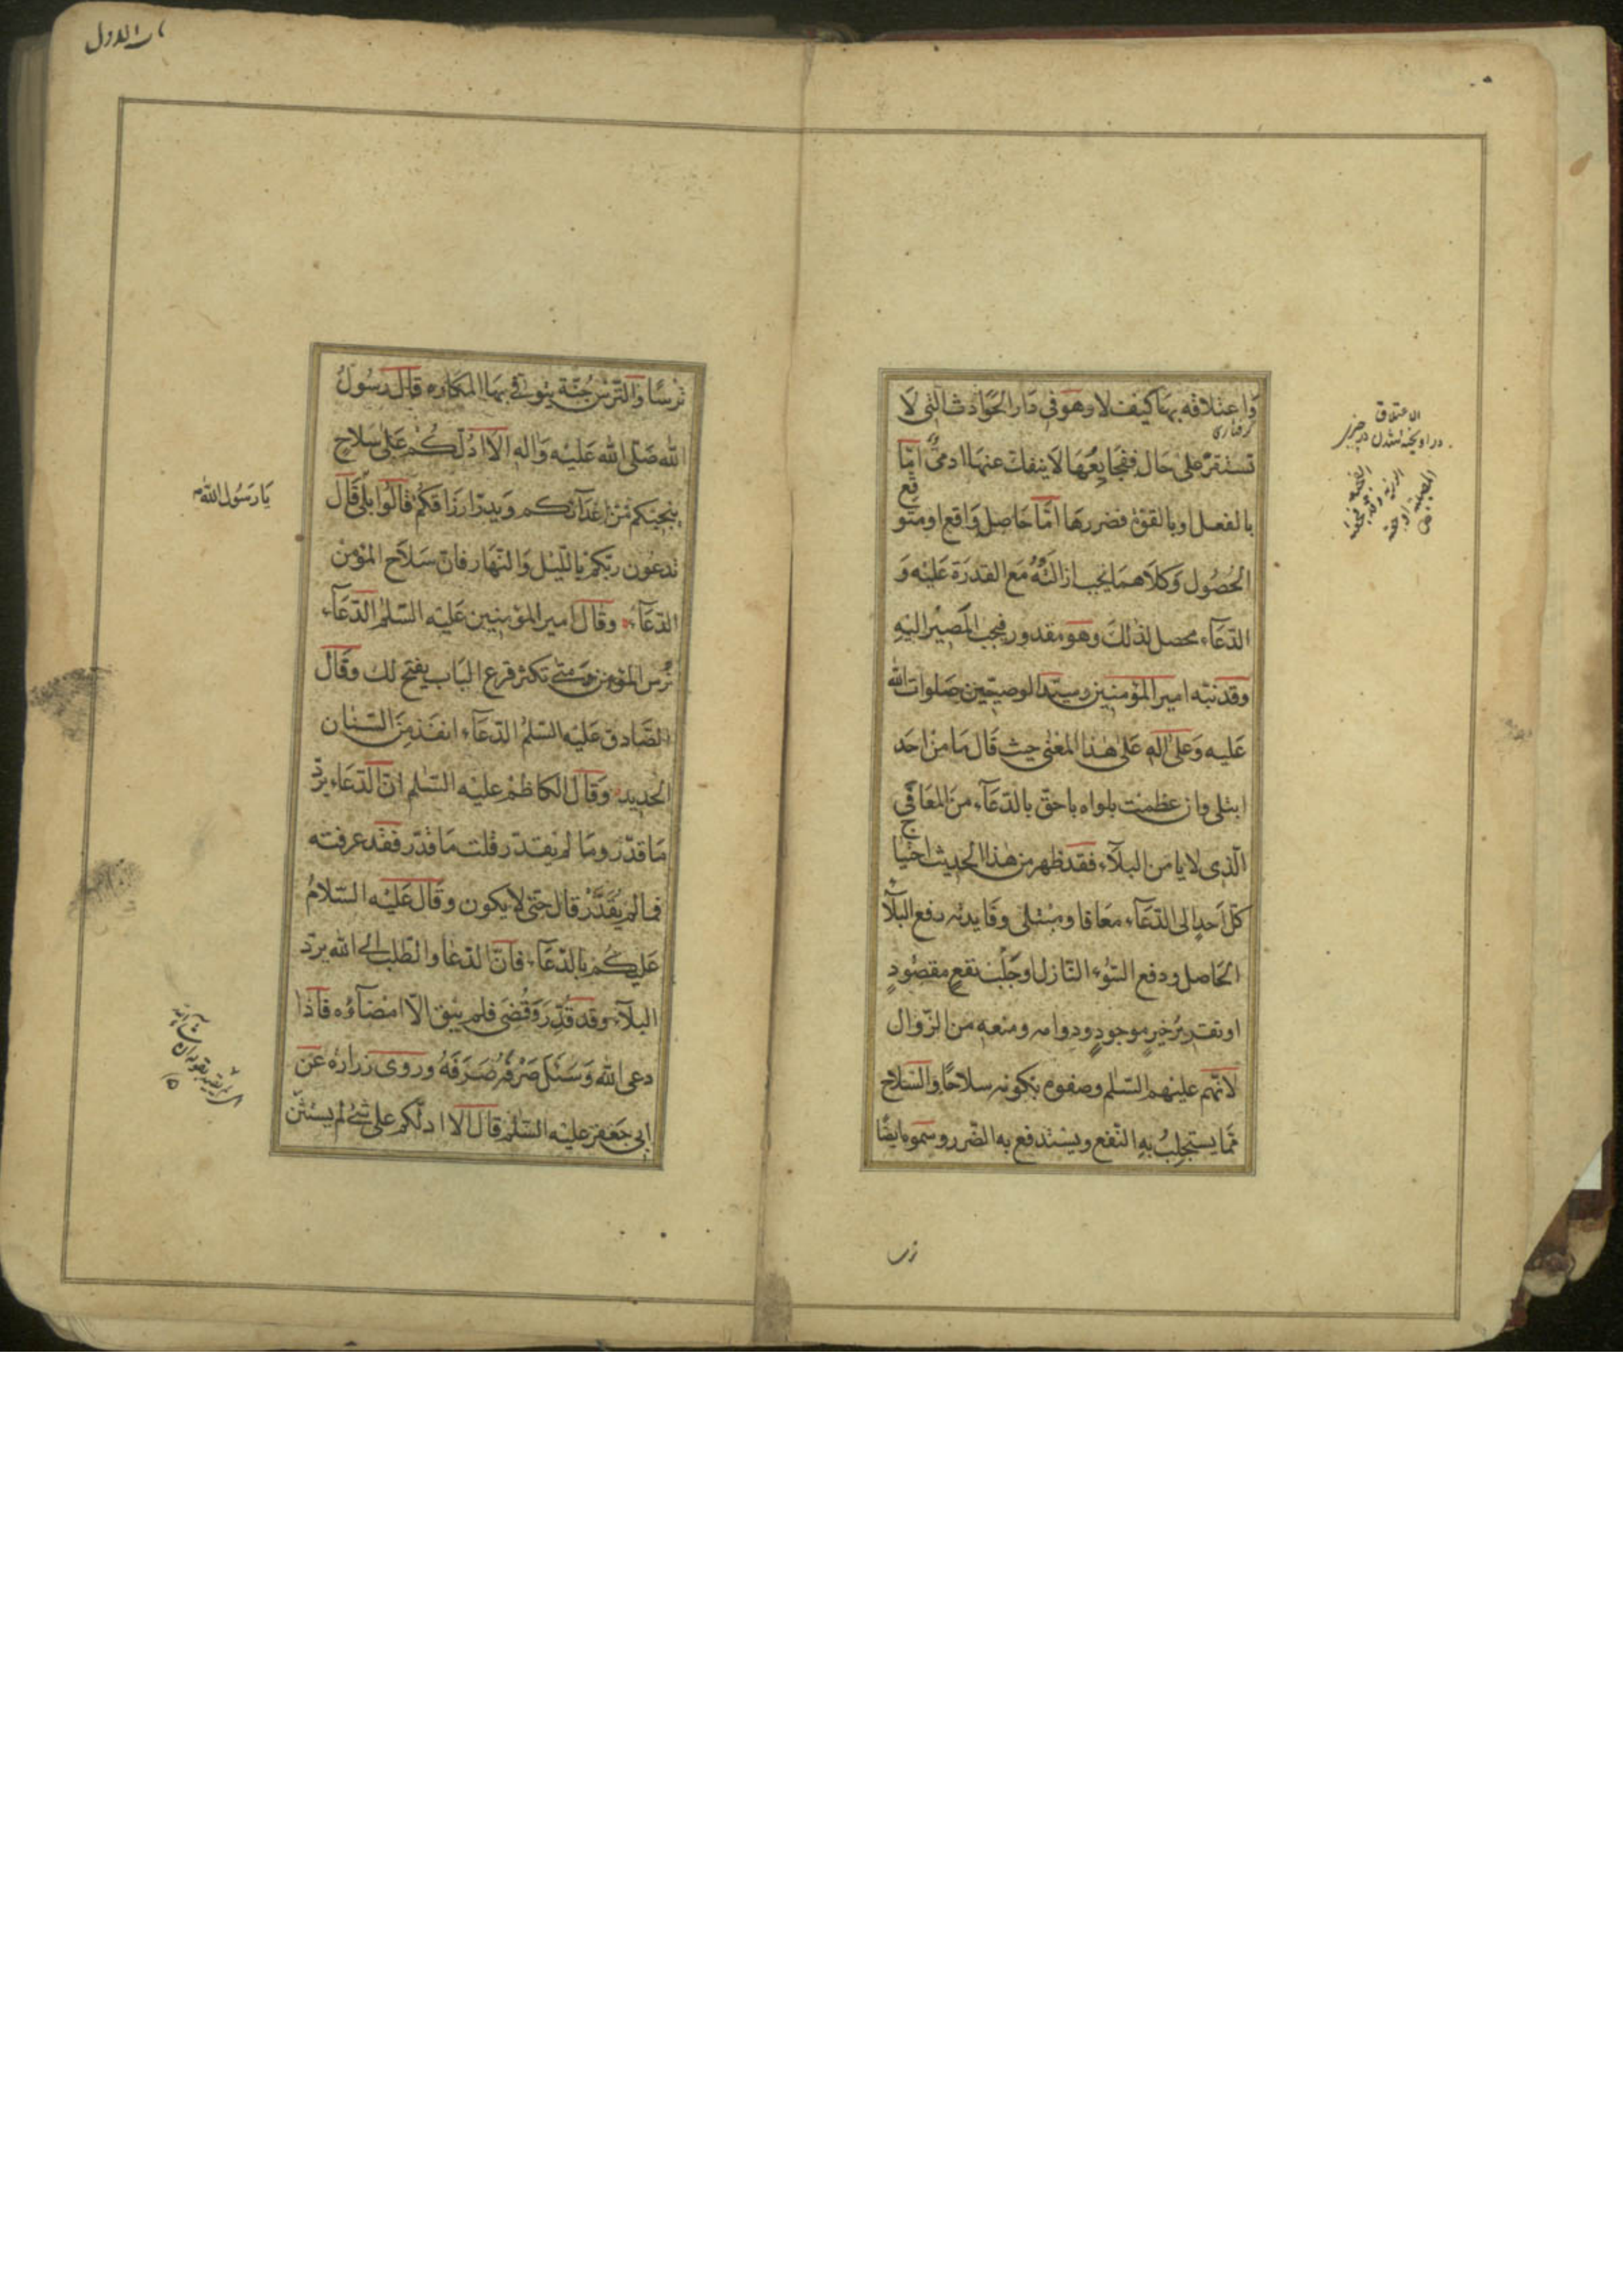 واعتلاقه بها كيف لا وهو فى دار الحوادث التى لا
تستقر على حال ففجايعها لا ينفك عنها ادمىّ امّا
بالفعل او بالقوّة فضررها امّا حاصل واقع او متوقع
الحصول وكلاهما يجب ازالته مع القدرة عليه و
الدّعآء محصل لذلك وهو مقدور فيجب المصير اليه
وقد نبّه امير المؤمنين وسيّد الوصيّين صلوات الله
عليه وعلى اله على هذا المعنى حيث قال ما من احد
ابتلى وان عظمت بلواه باحقّ بالدّعآء من المعافى
الّذى لا يامن البلآء فقد ظهر من هذا الحديث احتياج
كلّ احد الى الدّعآء معافا ومبتلى وفايدته دفع البلآء
الحاصل ودفع السّوء النّازل او جلب نفع مقصود
او تقرير خير موجود ودوامه ومنعه من الزّوال
لانّهم عليهم السّلم وصفوه بكونه سلاحًا والسّلاح
ممّا يستجلب به النّفع ويستدفع به الضّرر وسموه ايضًا
الاعتلاق
در اويخته شدن در چيزى
گرفتارى
تر
ترسًا والتّرس جُنّة يتوقّى بها المكاره قال رسول
الله صلّى الله عليه واله الا ادلّكم على سلاح
ينجيكم من اعدآئكم ويدرّ ارزاقكم قالوا بلى قال
تدعون ربّكم بالليل والنّهار فانّ سلاح المؤمن
الدّعآء وقال امير المؤمنين عليه السّلم الدّعآء
ترس المؤمن ومتى تكثر قرع الباب يفتح لك وقال
الصّادق عليه السّلم الدّعآء انفذ من السّنان
الحديد وقال الكاظم عليه السّلم انّ الدّعآء يردّ
ما قدّر وما لم يقدّر قلت ما قدّر فقد عرفته
فما لم يُقَدَّر قال حتّى لا يكون وقال عليه السّلام
عليكم بالدّعآء فانّ الدّعا والطّلب الى الله يردّ
البلآء وقد قُدِّر وقُضى فلم يبق الّا امضآؤه فاذا
دعى الله وسئل صرفه صرفهُ وروى زرارة عن
ابى جعفر عليه السّلم قال الا ادلّكم على شئ لم يستثن
يا رسول الله